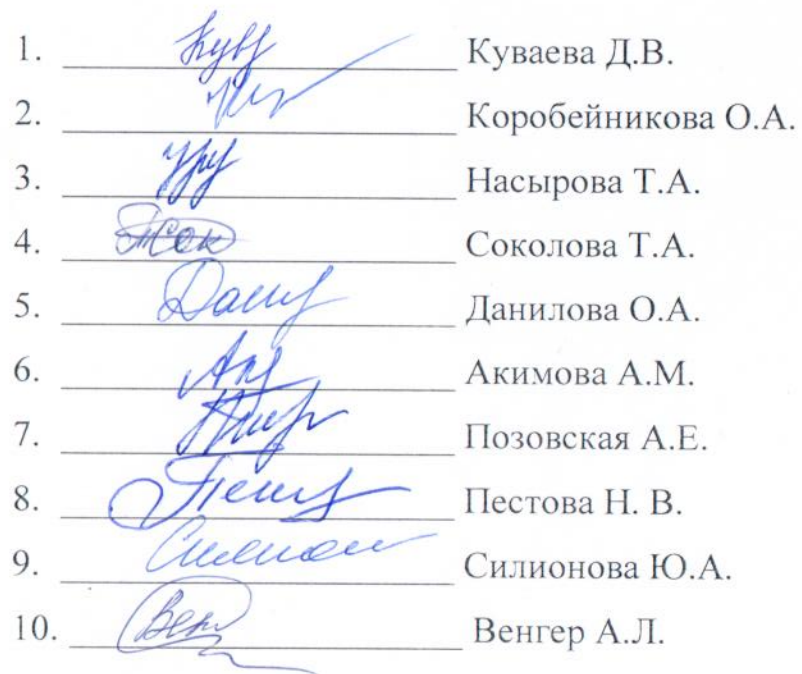 1. Куваева Д.В.
2. Коробейникова О.А.
3. Насырова Т.А.
4. Соколова Т.А.
5. Данилова О.А.
6. Акимова А.М.
7. Позовская А.Е.
8. Пестова Н. В.
9. Силионова Ю.А.
10. Венгер А.Л.